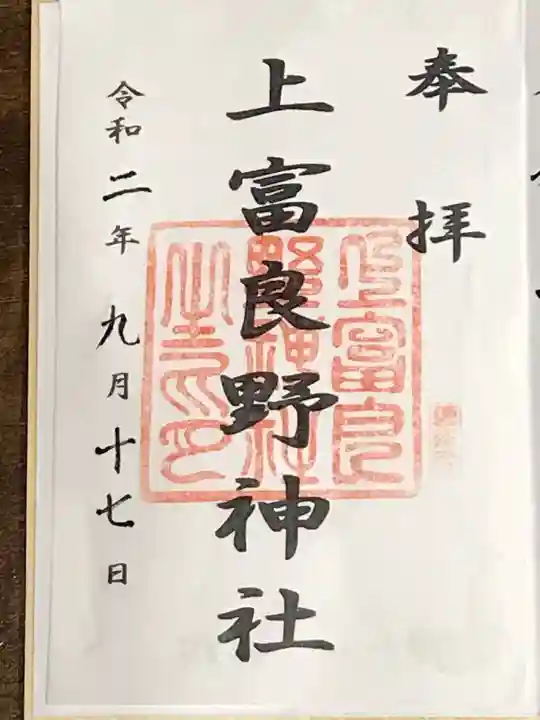 奉拝
上富良野神社
上富良
野神社
之印
令和二年九月十七日